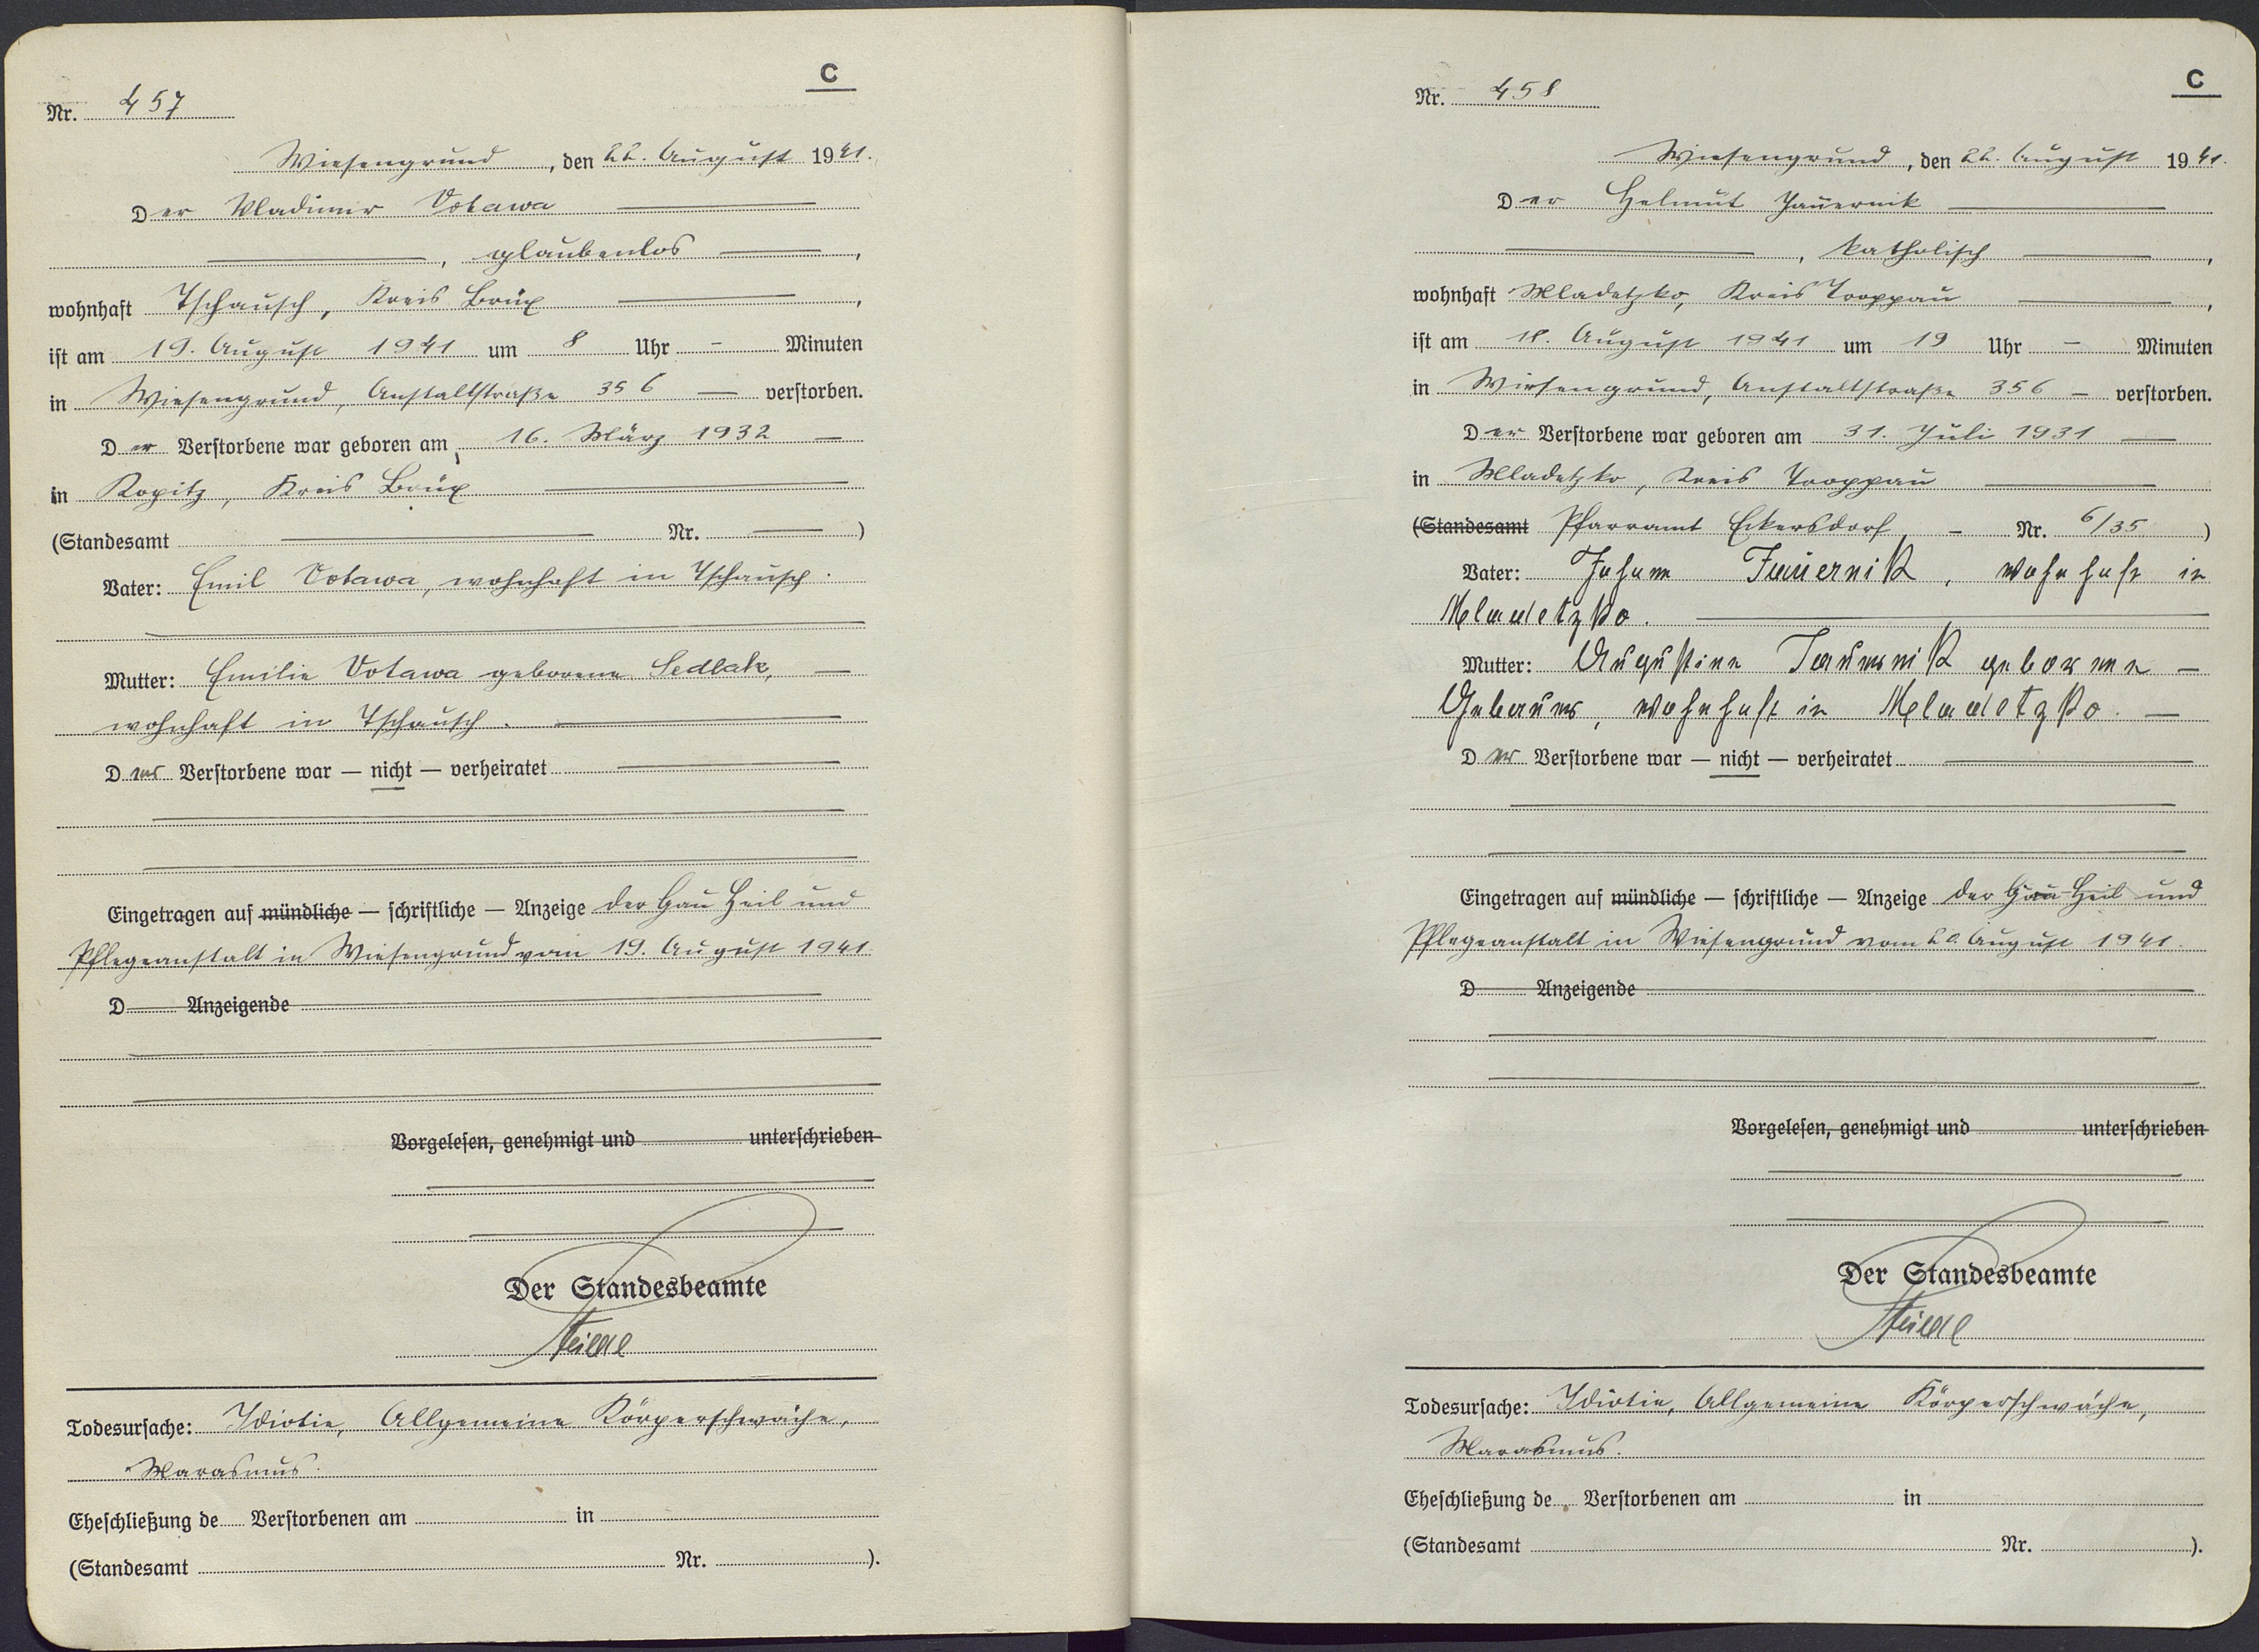 C
Nr. 457
Wiesengrund, den 22. August 1941.
Der Vladimir Votawa
, glaubenlos ,
wohnhaft Tschausch, Kreis Brüx ,
ist am 19. August 1941 um 8 Uhr - Minuten
in Wiesengrund, Anstaltstraße 356 — verstorben.
Der Verstorbene war geboren am 16. März 1932 —
in Kopitz, Kreis Brüx
(Standesamt Nr. )
Vater: Emil Votawa, wohnhaft in Tschausch.
Mutter: Emilie Votawa geborene Sedlak, —
wohnhaft in Tschausch.
Der Verstorbene war — nicht — verheiratet
Eingetragen auf mündliche — schriftliche — Anzeige der Gau Heil und
Pflegeanstalt in Wiesengrund vom 19. August 1941.
D Anzeigende
Vorgelesen, genehmigt und unterschrieben
Der Standesbeamte
Todesursache: Idiotie, Allgemeine Körperschwäche,
Marasmus.
Eheschließung de Verstorbenen am in
(Standesamt Nr. ).
C
Nr. 458
Wiesengrund, den 22. August 1941.
Der Helmut Jauernik
, katholisch ,
wohnhaft Mladetzko, Kreis Troppau ,
ist am 18. August 1941 um 19 Uhr - Minuten
in Wiesengrund, Anstaltstraße 356 — verstorben.
Der Verstorbene war geboren am 31. Juli 1931 —
in Mladetzko, Kreis Troppau
(Standesamt Pfarramt Eckersdorf - Nr. 6/35 )
Vater: Johann Jauernik, wohnhaft in
Mladetzko.
Mutter: Augustine Jauernik geborene —
Gebauer, wohnhaft in Mladetzko. —
Der Verstorbene war — nicht — verheiratet
Eingetragen auf mündliche — schriftliche — Anzeige der Gau Heil und
Pflegeanstalt in Wiesengrund vom 20. August 1941.
D Anzeigende
Vorgelesen, genehmigt und unterschrieben
Der Standesbeamte
Todesursache: Idiotie, Allgemeine Körperschwäche,
Marasmus.
Eheschließung de Verstorbenen am in
(Standesamt Nr. ).